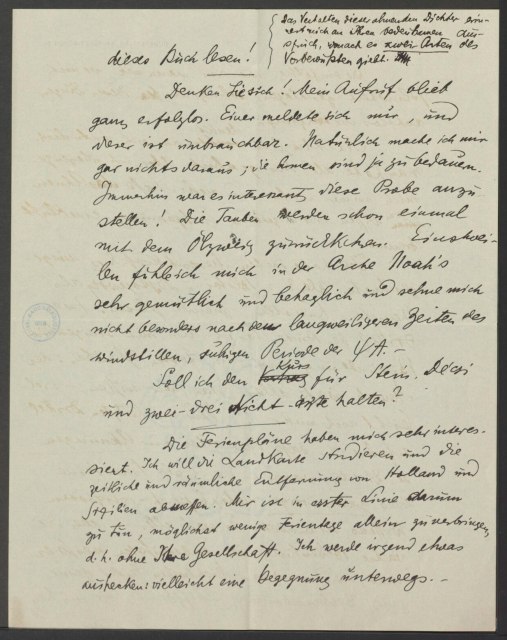 dieses Buch lesen!
Das Verhalten dieser ahnenden Dichter erin-
nert mich an Ihren Aus-
spruch, wonach es zwei Arten des
Vorbewußten giebt.
Denken Sie sich! Mein Aufruf blieb
ganz erfolglos. Einer meldete sich nur, und
dieser ist unbrauchbar. Natürlich mache ich mir
gar nichts daraus; die Armen sind ja zu bedauern.
Immerhin war es interessant, diese Probe anzu-
stellen! Die Tauben werden schon einmal
mit dem Ölzweig zurückkehren. Einstwei-
len fühle ich mich in der Arche Noah's
sehr gemütlich und behaglich und sehne mich
nicht besonders nach den langweiligeren Zeiten des
windstillen, Periode der ΨA. –
Soll ich den Kurs für Stein, Décsi
und zwei-drei Nicht-ärzte halten?
Die Ferienpläne haben mich sehr interes-
siert. Ich will die Landkarte studieren und die
zeitliche und räumliche Entfernung von Holland und
Sizilien abmessen. Mir ist in erster Linie darum
zu tun, möglichst wenige Ferientage allein zu verbringen,
d. h. ohne Ihre Gesellschaft. Ich werde irgend etwas
aushecken: vielleicht eine Begegnung unterwegs. –